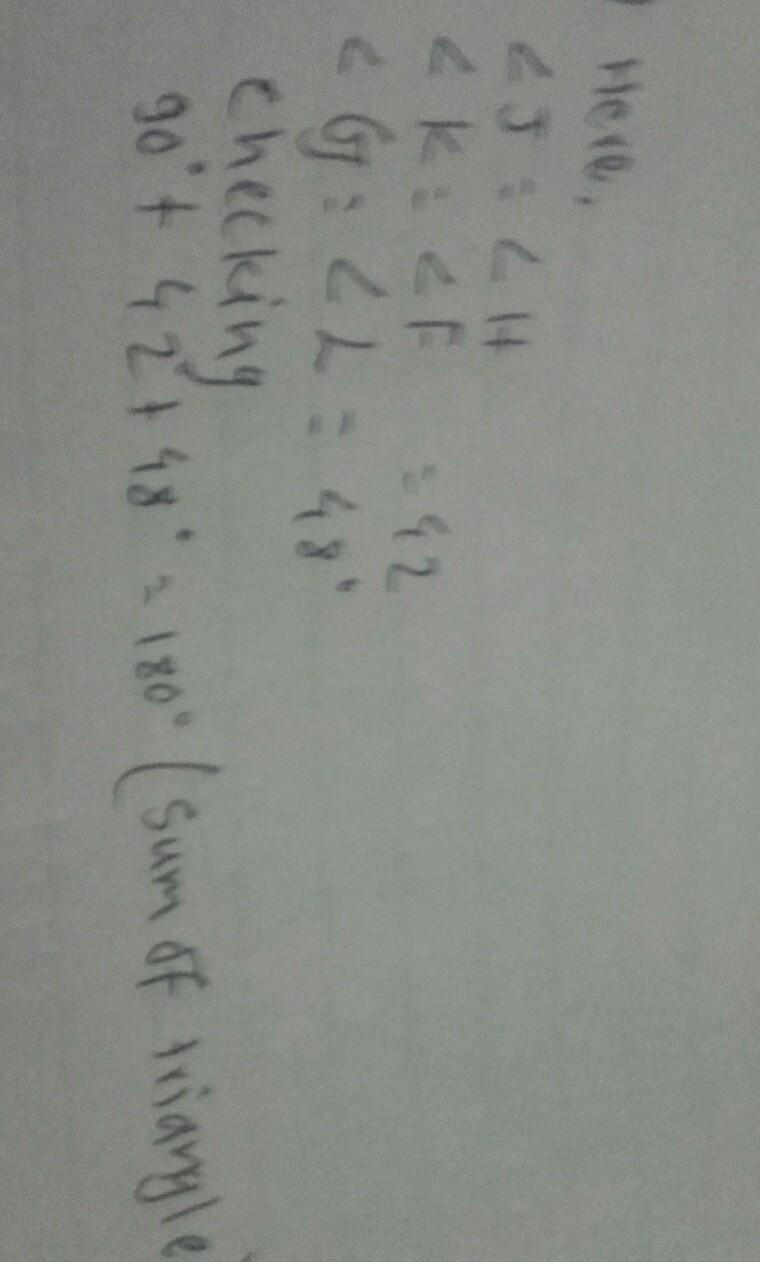 Here,
∠J = ∠H
∠K = ∠F = 42
∠G = ∠L = 48°
checking
90° + 42° + 48° = 180° (sum of triangle